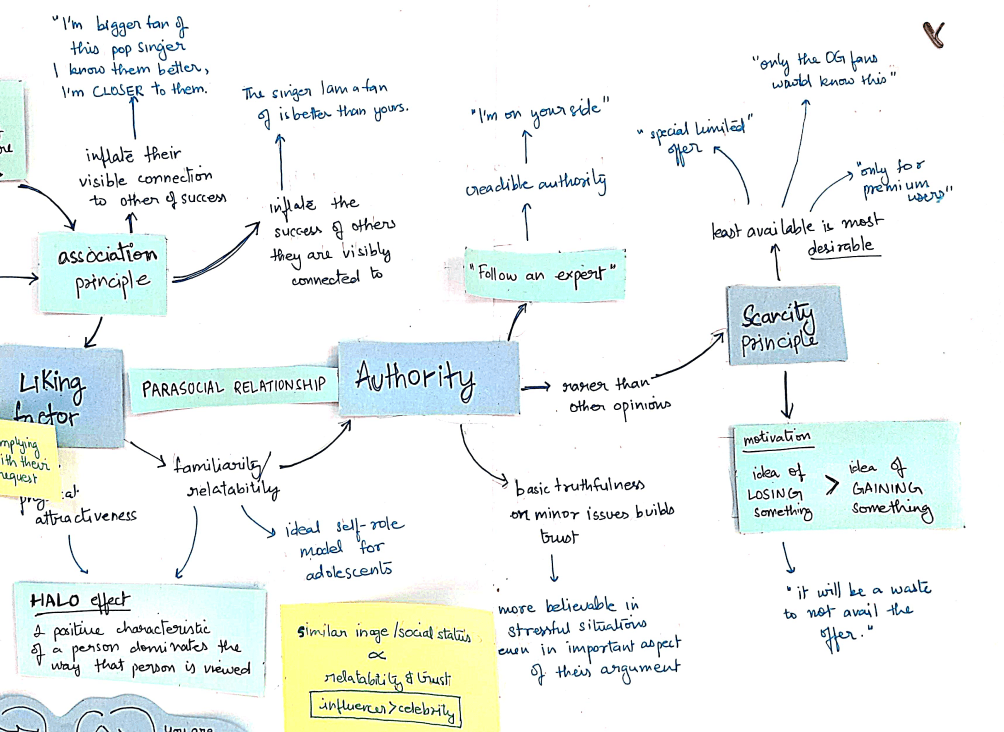 "I'm bigger fan of
this pop singer
I know them better,
I'm CLOSER to them.
The singer I am a fan
of is better than yours.
"I'm on your side"
"only the OG fans
would know this"
"special limited"
offer
"only for
premium
users"
inflate their
visible connection
to other of success
inflate the
success of others
they are visibly
connected to
creadible authority
least available is most
desirable
association
principle
"Follow an expert"
Scarcity
principle
Liking
factor
PARASOCIAL RELATIONSHIP
Authority
rarer than
other opinions
with their
request
attractiveness
familiarity/
relatability
ideal self-role
model for
adolescents
basic truthfulness
on minor issues builds
trust
motivation
idea of
LOSING
something
>
idea of
GAINING
something
HALO effect
1 positive characteristic
of a person dominates the
way that person is viewed
similar image/social status
∝
relatability & trust
influencer>celebrity
more believable in
stressful situations
even in important aspect
of their argument
"it will be a waste
to not avail the
offer."
you are